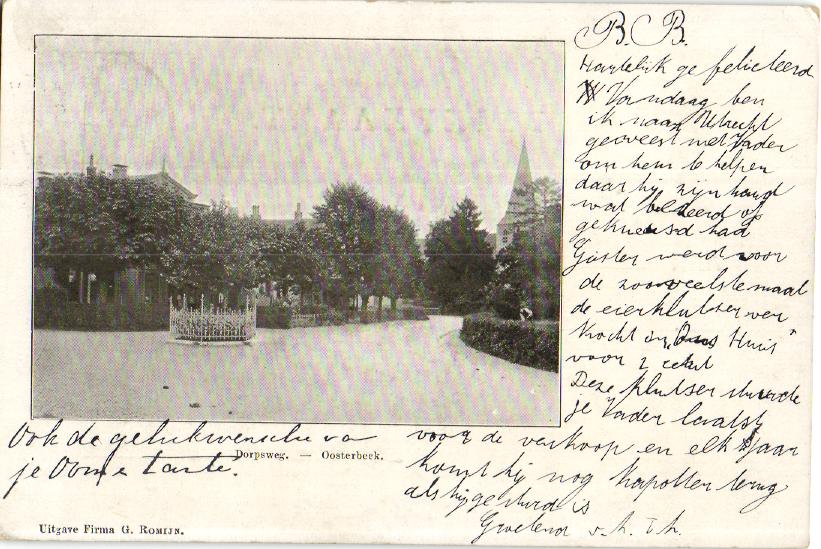 B. B.
Hartelijk gefeliciteerd
Vandaag ben
ik naar Utrecht
geweest met Vader
om hem te helpen
daar hij zijn hand
wat bezeerd of
gekneusd had
Gister werd voor
de zooveelste maal
de eierklutser ver
kocht in „Ons Huis"
voor 2 cent
Deze klutser stuurde
je Vader laatst
voor de verkoop en elk jaar
komt hij nog kapotter terug
als hij gestuurd is
Groetend
Ook de gelukwensche va
je Oom e tante.
Dorpsweg. — Oosterbeek.
Uitgave Firma G. ROMIJN.